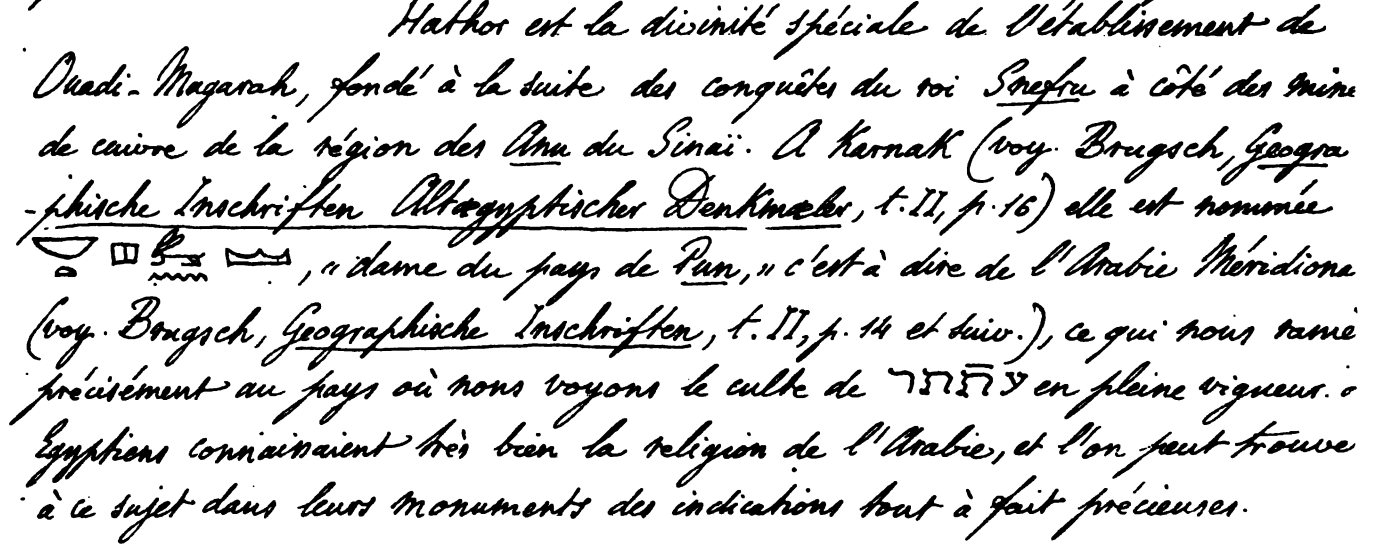 Hathor est la divinité spéciale de l'établissement de
Ouadi-Magarah, fondé à la suite des conquêtes du roi Snefru à côté des mine
de cuivre de la région des Anu du Sinaï. A Karnak (voy. Brugsch, Geogra
-phische Inschriften Altægyptischer Denkmæler, t. II, p. 16) elle est nommée
, « dame du pays de Pun, » c'est à dire de l'Arabie Méridiona
(voy. Brugsch, Geographische Inschriften, t. II, p. 14 et suiv.), ce qui nous ramè
précisément au pays où nous voyons le culte de עתֿתר en pleine vigueur.
Egyptiens connaissaient très bien la religion de l'Arabie, et l'on peut trouve
à ce sujet dans leurs monuments des indications tout à fait précieuses.